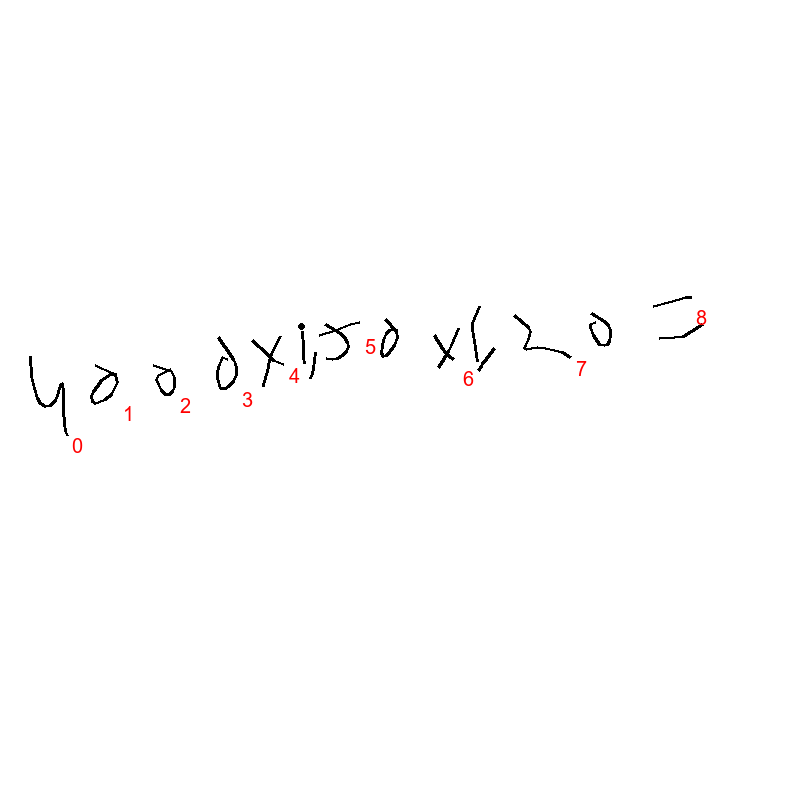 4000x1,50x1,20=
0 1 2 3 4 5 6 7 8